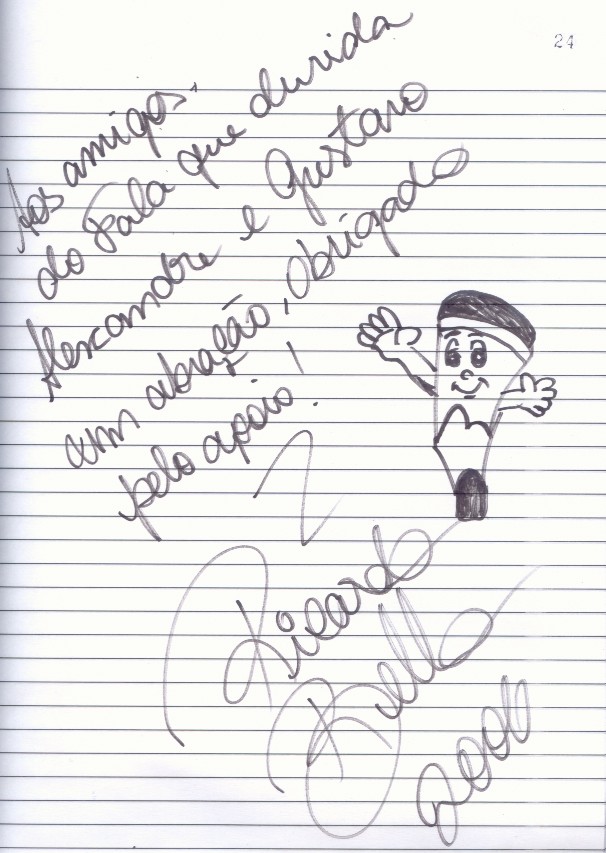 24
Aos amigos
do Fala que duvida
Alexandre e Gustavo
um abração, obrigado
pelo apoio!
Ricardo
Bello
2006